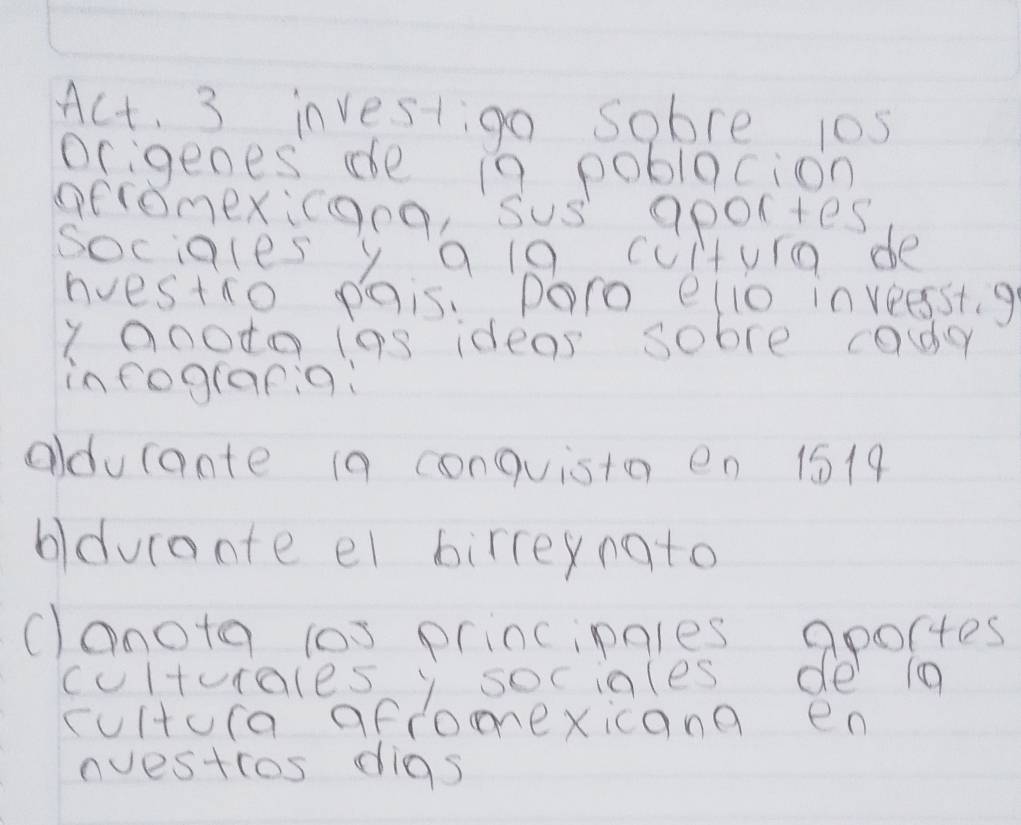 Act. 3 investiga sobre los
Origenes de la poblacion
afromexicana, sus aportes
sociales y a la cultura de
nuestro pais. Para ello inveesstig
y anota las ideas sobre cada
infografia:
a) durante la conquista en 1519
b) durante el birreynato
c) anota los principales aportes
culturales y sociales de la
cultura afromexicana en
nuestros dias